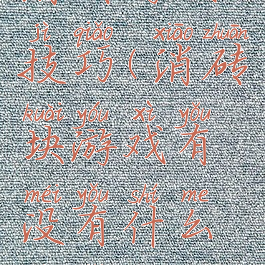 jì qiǎo xiāo zhuān
技巧(消砖
kuài yóu xì yǒu
块游戏有
méi yǒu shí me
没有什么